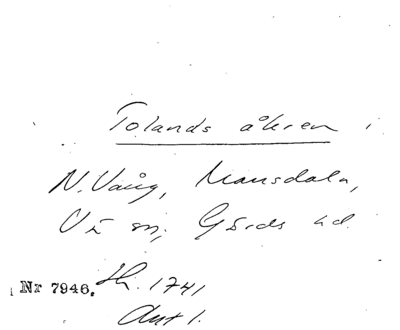 Tolands åkren
N. Vång, Mansdala,
Vä sn, Gärds hd.
Nr 7946. Sk. 1741
Akt 1.